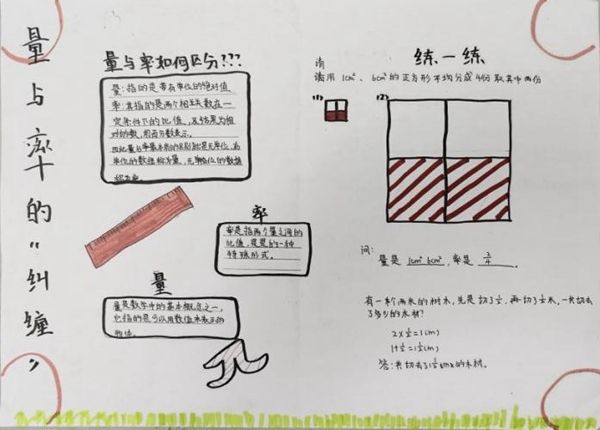 量与率的“纠缠”
量与率如何区分???
量:指的是带有单位的绝对值
率:其指的是两个相关数在一
定条件下的比值,
对的数,用百分数表示。
单位的数值称为量,无单位的数值
称为率
率
率是指两个量之间的
比值,是是的一种
特殊形式。
量
量是数学中的基本概念之一,
它指的是可以用数值来表示的
物体。
练一练
请
请用1cm²、6cm²的正方形平均分成4份取其中两份
(1)
(2)
问:
量是 1cm² 6cm²,率是 2/4 。
有一个两米的树木,先是切了1/2,再切了1/2米,一共切去
了多少的木材?
2×1/2=1(m)
1+1/2=1 1/2(m)
答:共切去了1 1/2 的木材。